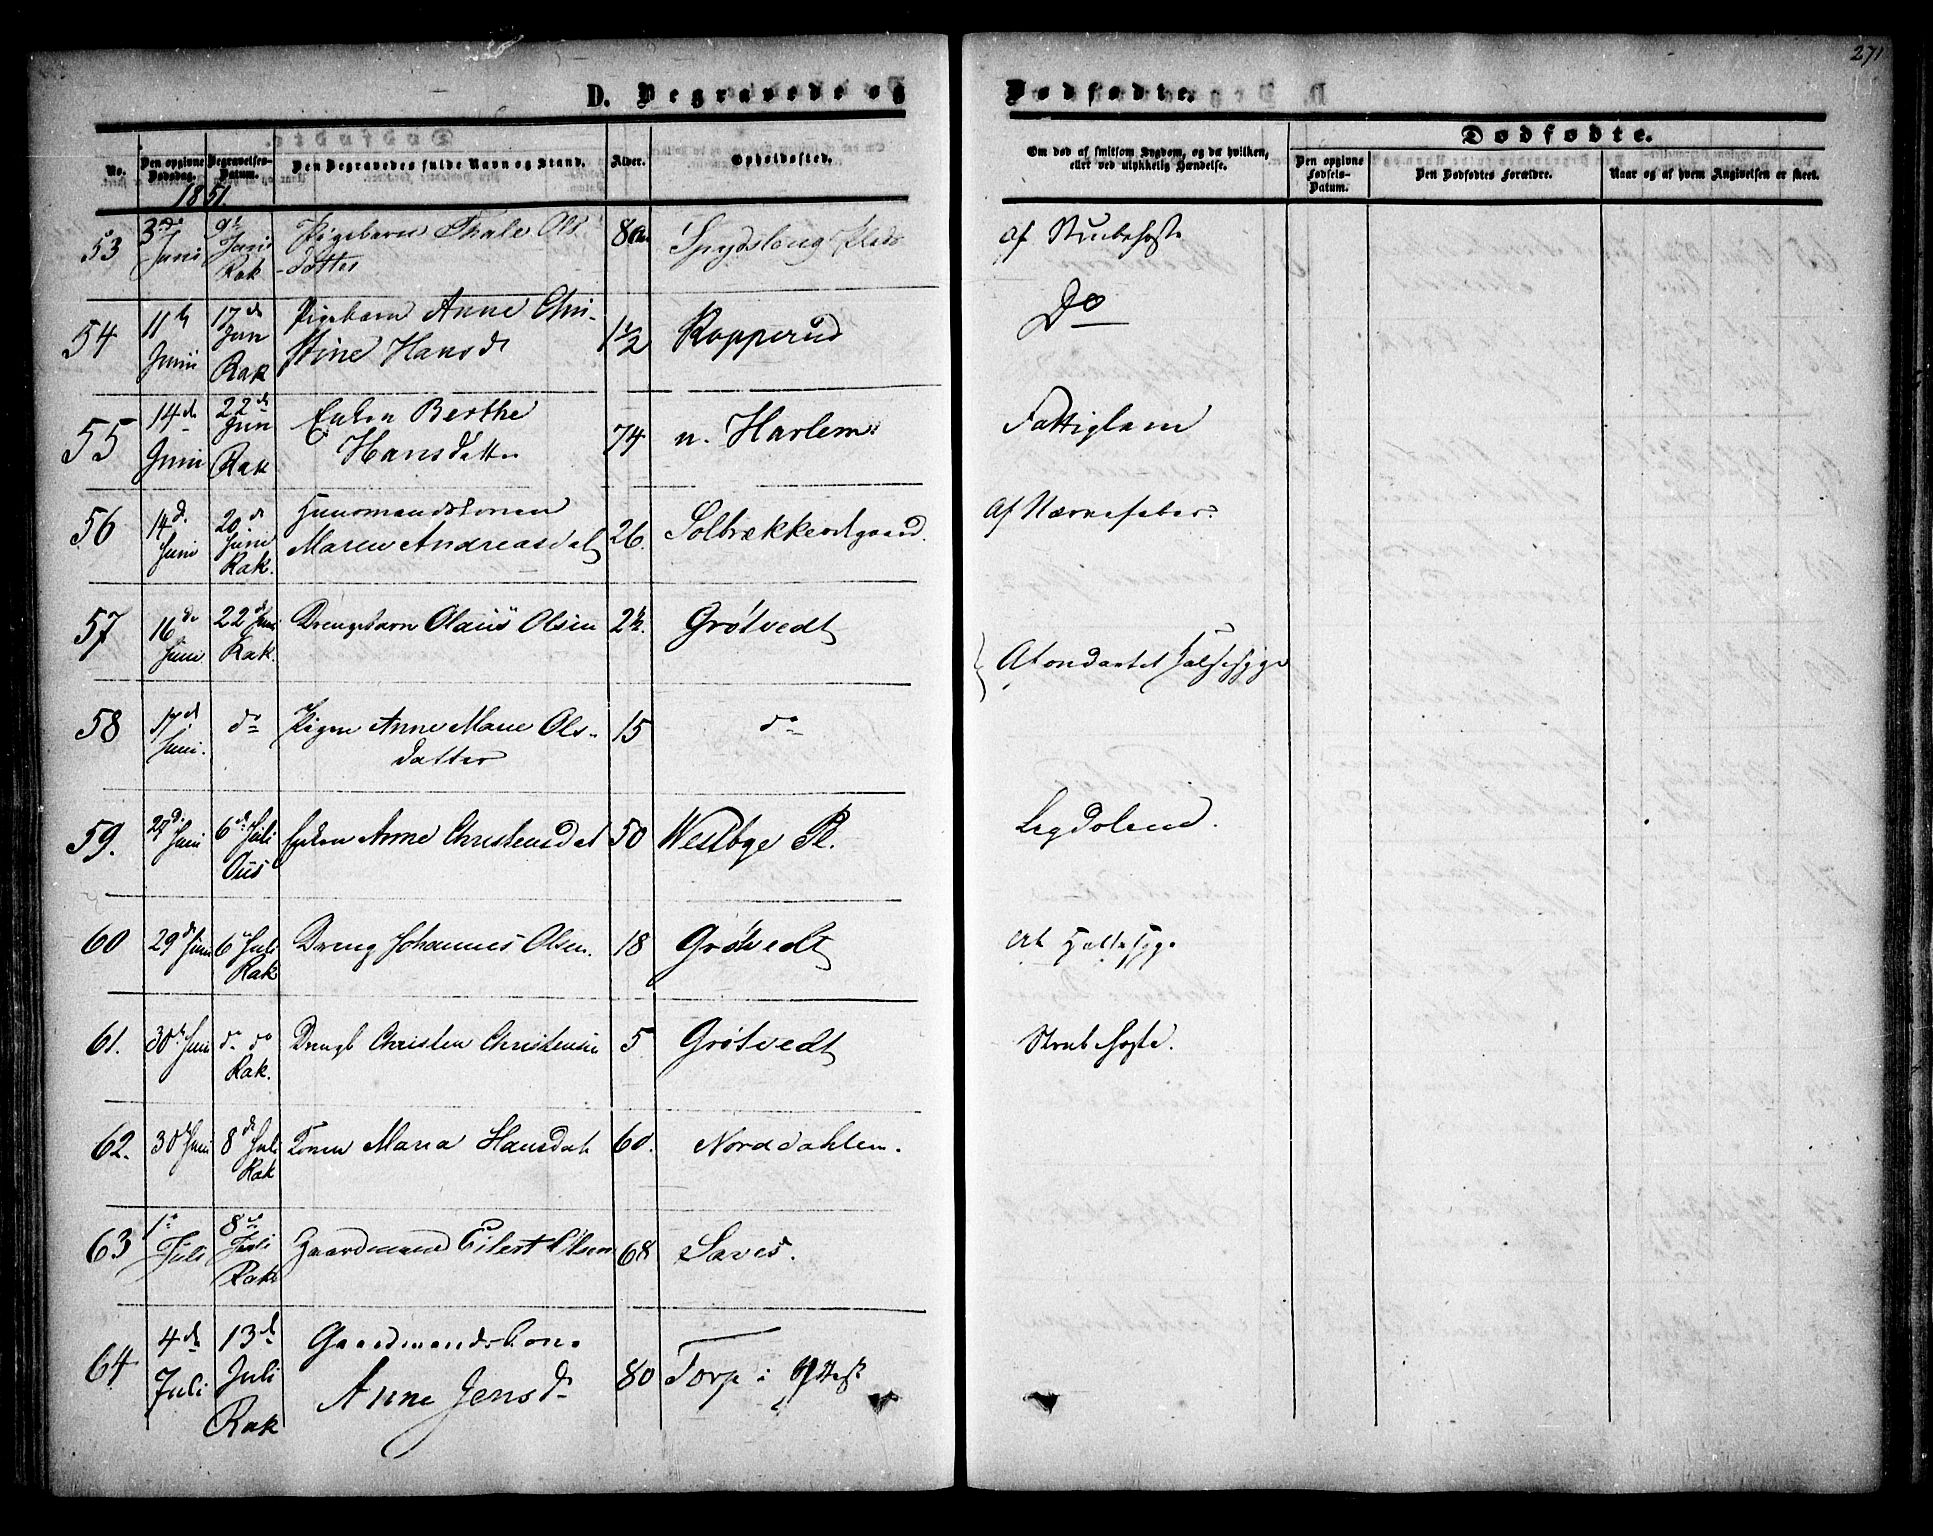 271
D. Begravede og Dødfødte.
Dødfødte.
No.
Den opgivne Dødsdag.
Begravelses-Datum.
Den Begravedes fulde Navn og Stand.
Alder.
Opholdssted.
Om død af smitsom Sygdom, og da hvilken, eller ved ulykkelig Hændelse.
Den opgivne Fødsels-Datum.
Den Dødfødtes Forældre.
Naar og af hvem Angivelsen er skeet.
1851.
53 3de Juni 9de Juni Rak Pigebarn Thale Ols
datter 8 Spydsloug Plads af Strubehoste
54 11te Junii 17de Jun Rak Pigebarn Anne Chri-
stine Hansd 1½ Kopperud Do
55 14de Junii 22de Jun Rak Enken Berthe
Hansdatter 74 n. Harlem Fattiglem
56 14de Juni 20de Junii Rak. Huusmandskonen
Maren Andreasdat 26. Solbrækkeødgaard. Af Nervefeber.
57 16de Juni 22de Juni Rak. Drengebarn Olaus Olsen 2 Grøtvedt
Af ondartet Halssyge
58 17d Juni. do Pigen Anne Marie Ols-
datter 15 do
59. 27d. Juni 6de Juli Ous Enken Anne Christensdat 50 Westbye Pl. Legdelem.
60 29de Juni 6te Juli Rak Dreng Johannes Olsen. 18 Grøtvedt af Halssyge
61. 30te Juni do do Rak. Drengb Christen Christensen 5 Grøtvedt Strubehoste.
62. 30te Juni 8de Juli Rak Konen Maria Hansdat 60. Norddahlen.
63 1te Juli 8de Juli Rak Gaardmand Eilert Olsen 68 Saves.
64 4de Juli 13de Juli Rak Gaardmandskone
Anne Jensd 80 Torp i